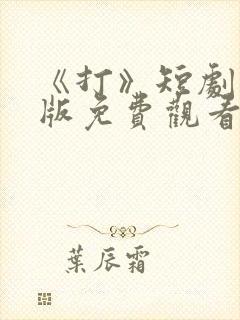 《打》短劇
版免費觀看
葉辰霜